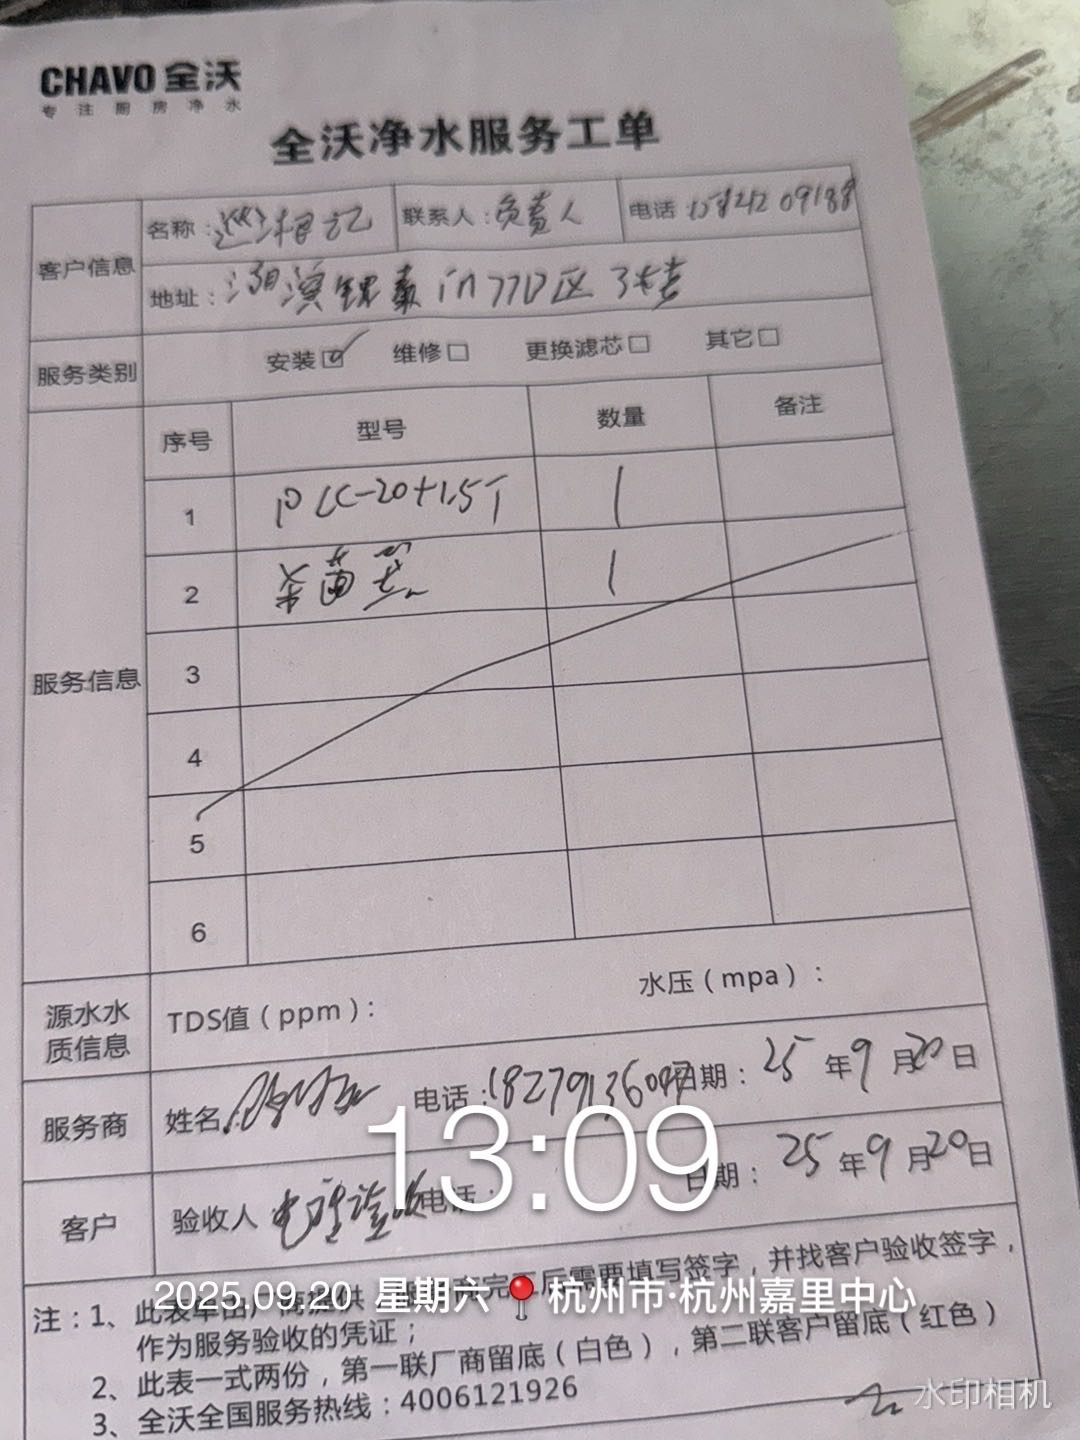 CHAVO 全沃
专注厨房净水
全沃净水服务工单
客户信息 名称: 联系人:负责人 电话
地址: 湖滨银泰in77D区3楼
服务类别 安装☑ 维修□ 更换滤芯□ 其它□
服务信息 序号 型号 数量 备注
1 PLC-20+1.5T 1
2 杀菌器 1
3
4
5
6
源水水质信息 TDS值(ppm): 水压(mpa):
服务商 姓名 电话: 日期: 25年9月20日
客户 验收人 电话: 日期: 25年9月20日
13:09
2025.09.20 星期六 杭州市·杭州嘉里中心
注:1、此表单由厂商提供 完工后需要填写签字,并找客户验收签字,
作为服务验收的凭证;
2、此表一式两份,第一联厂商留底(白色),第二联客户留底(红色)
3、全沃全国服务热线:4006121926
水印相机